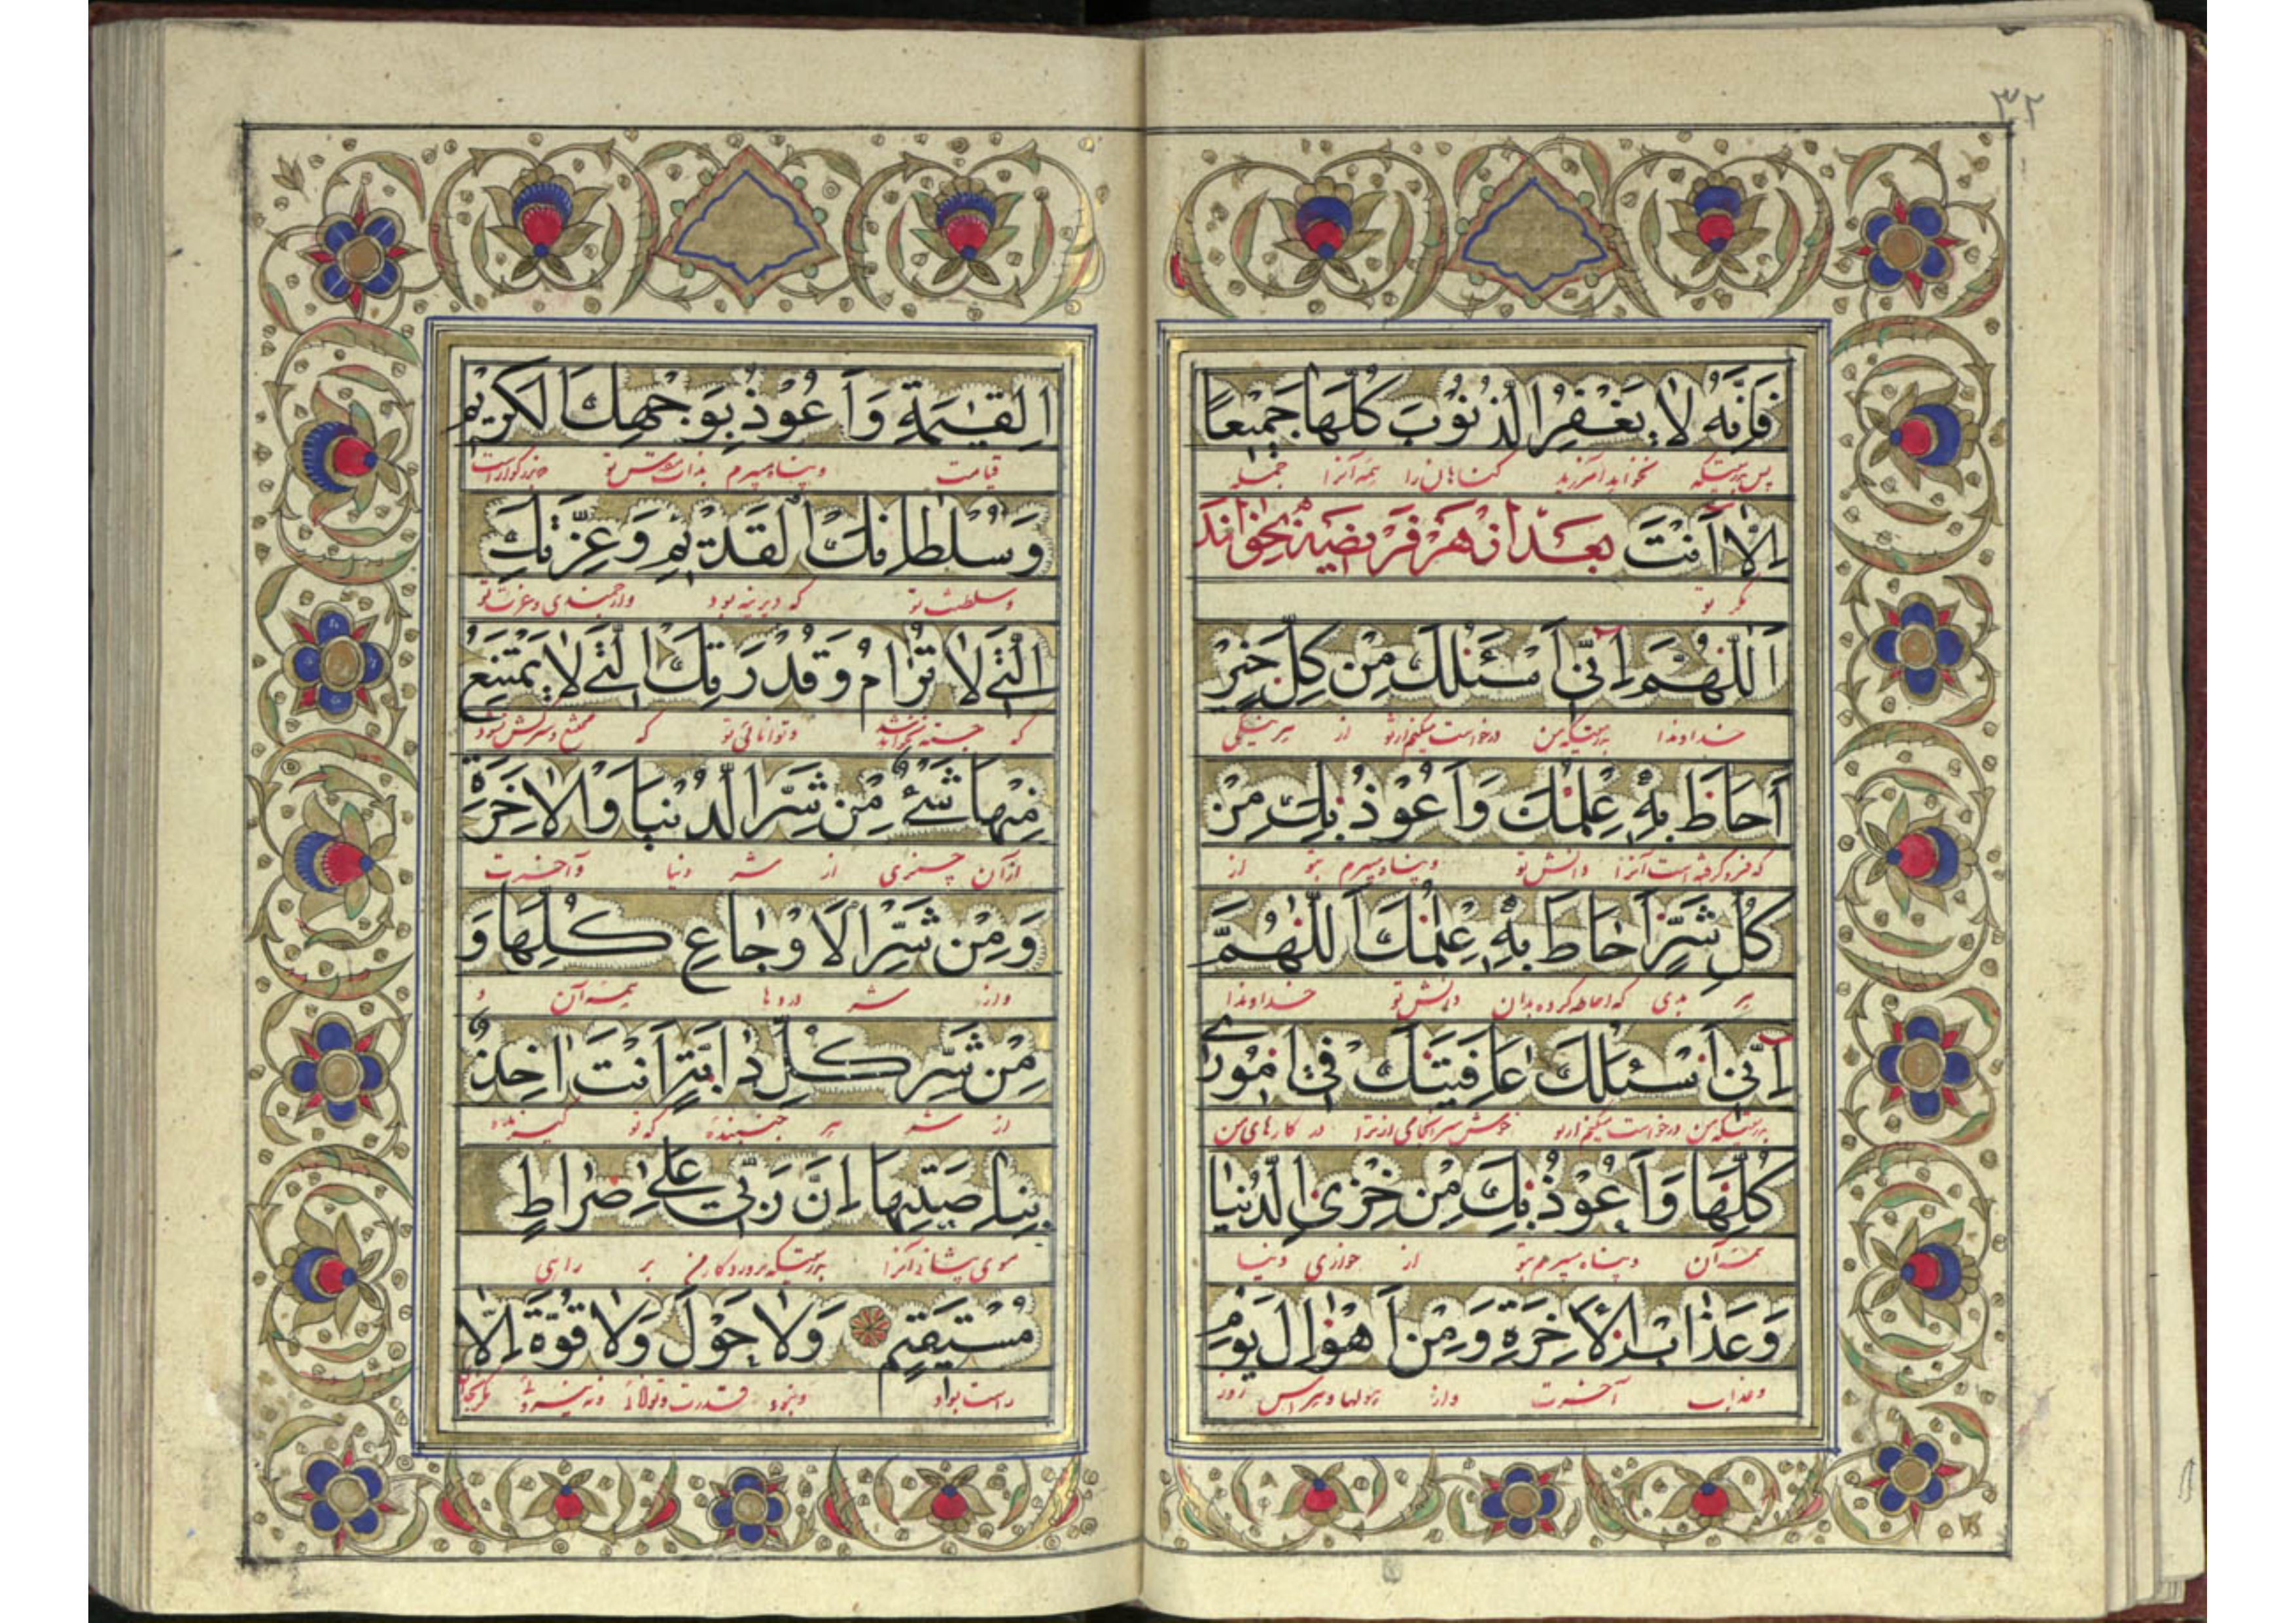 ٣٢
فَاِنَّهُ لٰا يَغْفِرُ الذُّنُوْبَ كُلَّهٰا جَمِيْعًا
پس بدرستیکه نخواهد آمرزید گناهان را همه آنرا جمله
اِلّٰا اَنْتَ بعد از هر فریضه بخواند
مگر تو
اَللّٰهُمَّ اِنّٖى اَسْئَلُكَ مِنْ كُلِّ خَيْرٍ
خداوندا بدرستیکه من درخواست میکنم از تو از هر نیکی
اَحَاطَ بِهٖ عِلْمُكَ وَاَعُوْذُ بِكَ مِنْ
که فرو گرفته است آنرا دانش تو و پناه میبرم بتو از
كُلِّ شَرٍّ اَحٰاطَ بِهٖ عِلْمُكَ اَللّٰهُمَّ
هر بدی که احاطه کرده بدان دانش تو خداوندا
اِنّٖى اَسْئَلُكَ عٰافِيَتَكَ فٖى اُمُوْرٖى
بدرستیکه من درخواست میکنم از تو خوش سرانجامی از ترا در کارهای من
كُلِّهٰا وَاَعُوْذُ بِكَ مِنْ خِزْىِ الدُّنْيٰا
همه آن و پناه میبرم بتو از خواری دنیا
وَعَذٰابِ الْاٰخِرَةِ وَمِنْ اَهْوٰالِ يَوْمِ
و عذاب آخرت و از هولها و هراس روز
الْقِيٰمَةِ وَاَعُوْذُ بِوَجْهِكَ الْكَرِيْمِ
قیامت و پناه میبرم بذات مقدس تو که بزرگوار است
وَسُلْطٰانِكَ الْقَدٖيْمِ وَعِزَّتِكَ
و سلطنت تو که دیرینه بود و ارجمندی و عزت تو
الَّتٖى لٰا تُرٰامُ وَقُدْرَتِكَ الَّتٖى لٰا يَمْتَنِعُ
که جسته نخواهد شد و توانائی تو که ممتنع و سرکش نشود
مِنْهٰا شَىْءٌ مِنْ شَرِّ الدُّنْيٰا وَالْاٰخِرَةِ
از آن چیزی از شر دنیا و آخرت
وَمِنْ شَرِّ الْاَوْجٰاعِ كُلِّهٰا وَ
و از شر دردها همه آن و
مِنْ شَرِّ كُلِّ دٰابَّةٍ اَنْتَ اٰخِذٌ
از شر هر جنبنده که تو گیرنده
بِنٰاصِيَتِهٰا اِنَّ رَبّٖى عَلٰى صِرٰاطٍ
موی پیشانی آنرا بدرستیکه پروردگار من بر راهی
مُسْتَقٖيْمٍ وَلٰا حَوْلَ وَلٰا قُوَّةَ اِلّٰا
راست بود و نبود قدرت و توانائی و نه نیروئی مگر بخدای